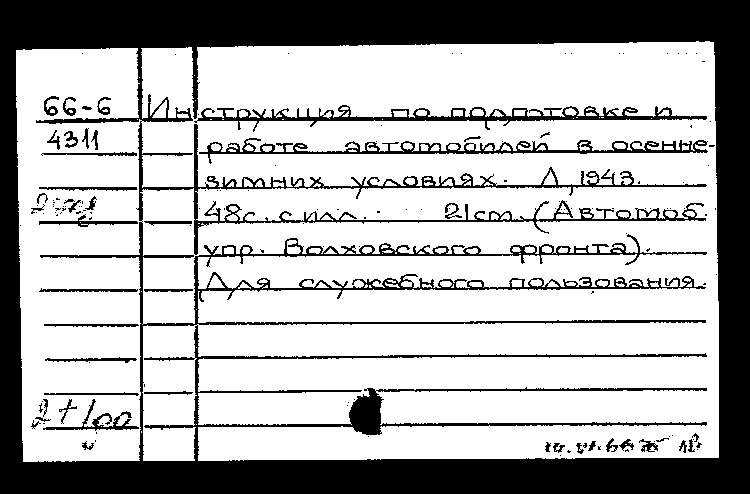 66-6 Инструкция по подготовке и
4311 работе автомобилей в осенне-
зимних условиях. Л, 1943.
48с. с илл. 21cm. (Автомоб.
упр. Волховского фронта).
Для служебного пользования.
2+1